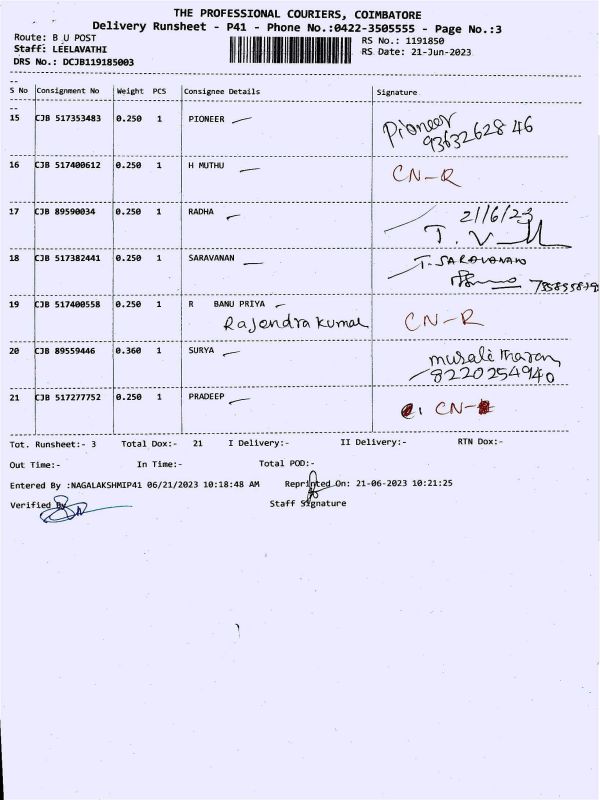 THE PROFESSIONAL COURIERS, COIMBATORE
Delivery Runsheet - P41 - Phone No.:0422-3505555 - Page No.:3
Route: B U POST RS No.: 1191850
Staff: LEELAVATHI RS Date: 21-Jun-2023
DRS No.: DCJB119185003
S No Consignment No Weight PCS Consignee Details Signature
15 CJB 517353483 0.250 1 PIONEER Pioneer
9363262846
16 CJB 517400612 0.250 1 H MUTHU CN-R
17 CJB 89590034 0.250 1 RADHA 21/6/23
T. V
18 CJB 517382441 0.250 1 SARAVANAN T. SARAVANAN
19 CJB 517400558 0.250 1 R BANU PRIYA CN-R
Rajendra kumar
20 CJB 89559446 0.360 1 SURYA murali tharan
8220254940
21 CJB 517277752 0.250 1 PRADEEP CN-
Tot. Runsheet:- 3 Total Dox:- 21 I Delivery:- II Delivery:- RTN Dox:-
Out Time:- In Time:- Total POD:-
Entered By :NAGALAKSHMIP41 06/21/2023 10:18:48 AM Reprinted On: 21-06-2023 10:21:25
Verified By Staff Signature